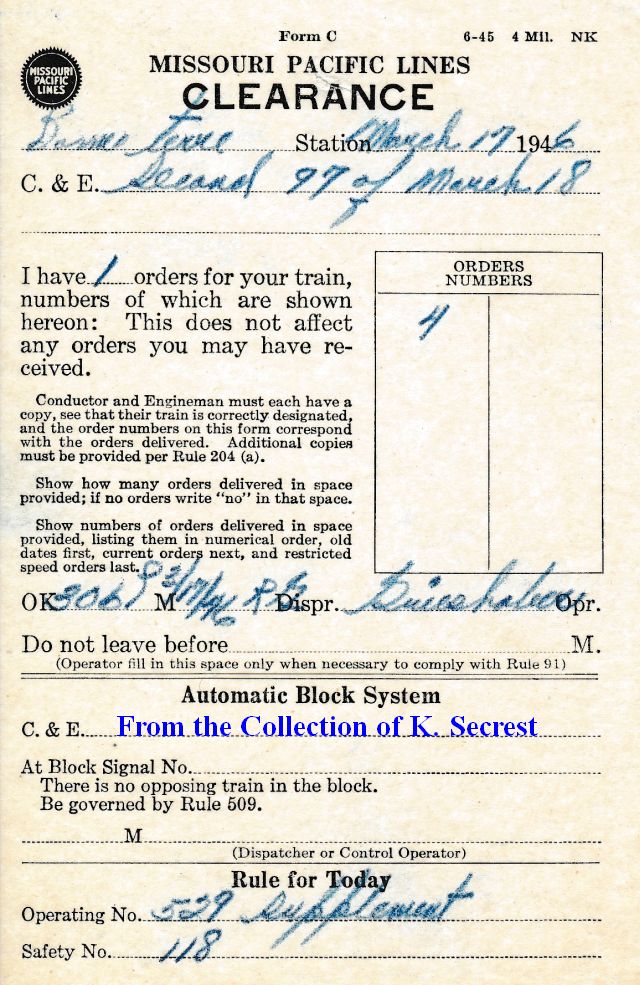 Form C 6-45 4 Mil. NK
MISSOURI PACIFIC LINES
MISSOURI PACIFIC LINES
CLEARANCE
Bonne Terre Station March 17 1946
C. & E. Second 97 of March 18
I have 1 orders for your train,
numbers of which are shown
hereon: This does not affect
any orders you may have re-
ceived.
ORDERS
NUMBERS
4
Conductor and Engineman must each have a
copy, see that their train is correctly designated,
and the order numbers on this form correspond
with the orders delivered. Additional copies
must be provided per Rule 204 (a).
Show how many orders delivered in space
provided; if no orders write "no" in that space.
Show numbers of orders delivered in space
provided, listing them in numerical order, old
dates first, current orders next, and restricted
speed orders last.
OK 306 P M 3/17/46 Dispr. Opr.
Do not leave before M.
(Operator fill in this space only when necessary to comply with Rule 91)
Automatic Block System
C. & E. From the Collection of K. Secrest
At Block Signal No.
There is no opposing train in the block.
Be governed by Rule 509.
M
(Dispatcher or Control Operator)
Rule for Today
Operating No. 529 supplement
Safety No. 118